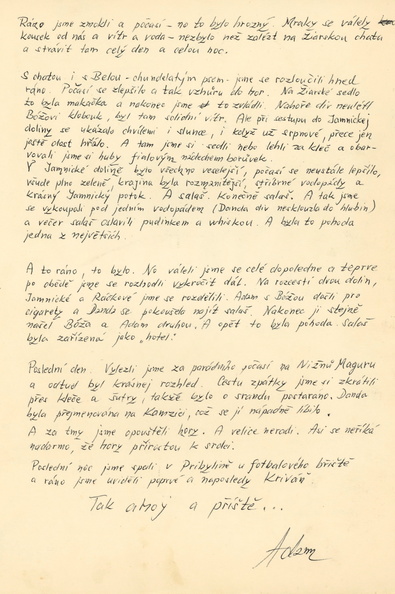 Ráno jsme zmokli a počasí – no to bylo hrozný. Mraky se válely
kousek od nás a vítr a voda – nezbylo než zalézt na Žiarskou chatu
a strávit tam celý den a celou noc.
S chatou i s Belou – chundelatým psem – jsme se rozloučili hned
ráno. Počasí se zlepšilo a tak vzhůru do hor. Na Žiarské sedlo
to byla makačka a nakonec jsme to zvládli. Nahoře div neulétl
Božovi klobouk, byl tam solidní vítr. Ale při sestupu do Jamnickej
doliny se ukázalo chvílemi i slunce, i když už srpnové, přece jen
ještě dost hřálo. A tam jsme si sedli nebo lehli za kleč a obar-
vovali jsme si huby fialovým nádechem borůvek.
V Jamnické dolině bylo všechno veselejší, počasí se neustále lepšilo,
všude plno zeleně, krajina byla rozmanitější, stříbrné vodopády a
krásný Jamnický potok. A salaš. Konečně salaš. A tak jsme
se vykoupali pod jedním vodopádem (Danda div nesklouzla do hlubin)
a večer salaš oslavili pudinkem a whiskou. A byla to pohoda
jedna z největších.
A to ráno, to bylo. No váleli jsme se celé dopoledne a teprve
po obědě jsme se rozhodli vykročit dál. Na rozcestí dvou dolin,
Jamnické a Račkové jsme se rozdělili. Adam s Božou došli pro
cigarety a Danda se pokoušela najít salaš. Nakonec ji stejně
našel Boža a Adam druhou. A opět to byla pohoda. Salaš
byla zařízená jako, hotel!
Poslední den. Vylezli jsme za parádního počasí na Nižnú Maguru
a odtud byl krásnej rozhled. Cestu zpátky jsme si zkrátili
přes kleče a šutry, takže bylo o srandu postaráno. Danda
byla přejmenována na Kamzici, což se jí nápadně líbilo.
A za tmy jsme opouštěli hory. A velice neradi. Asi se neříká
nadarmo, že hory přirostou k srdci.
Poslední noc jsme spali v Pribylině u fotbalového hřiště
a ráno jsme uviděli poprvé a naposledy Kriváň.
Tak ahoj a příště...
Adam